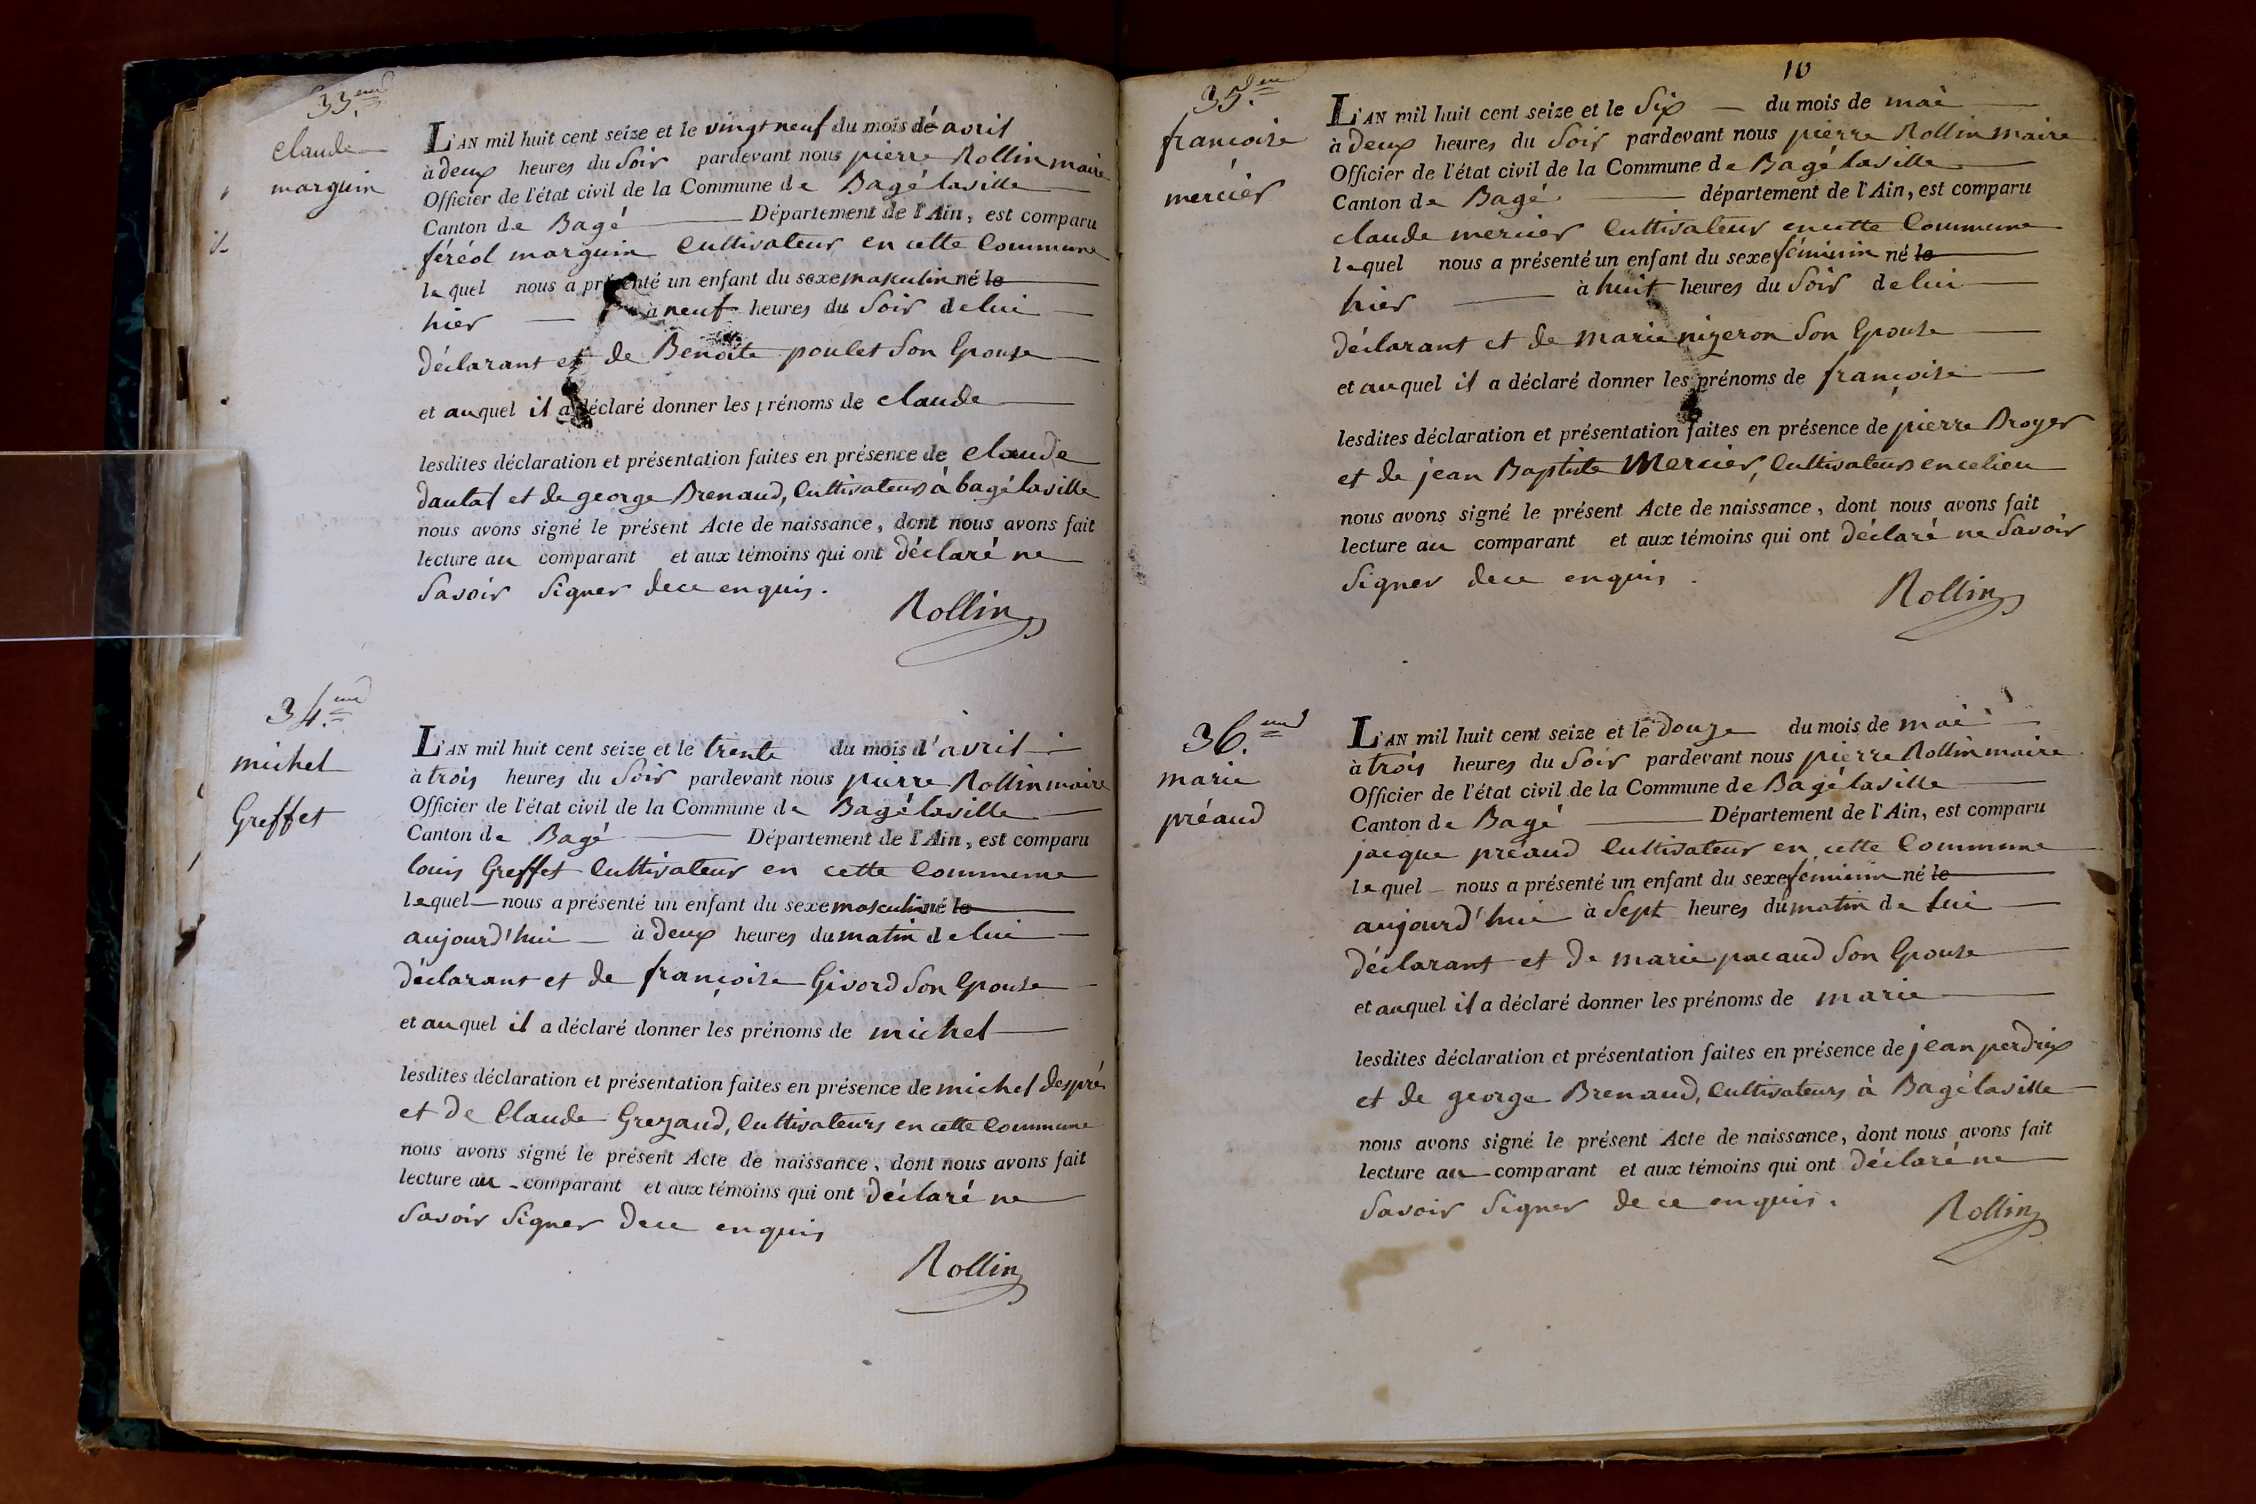 33.eme
claude
marguin
L'AN mil huit cent seize et le vingt neuf du mois d'avril
à deux heures du Soir pardevant nous pierre Rollin maire
Officier de l'état civil de la Commune de Bagé laville
Canton de Bagé Département de l'Ain, est comparu
féréol marguin Cultivateur en cette Commune
lequel nous a présenté un enfant du sexe masculin né le
hier à neuf heures du Soir de lui
déclarant et de Benoite poulet Son Epouse
et auquel il a déclaré donner les prénoms de claude
lesdites déclaration et présentation faites en présence de claude
dautal et de george Brenaud, Cultivateurs à bagé laville
nous avons signé le présent Acte de naissance, dont nous avons fait
lecture au comparant et aux témoins qui ont déclaré ne
Savoir Signer de ce enquis.
Rollin
34.eme
michel
Greffet
L'AN mil huit cent seize et le trente du mois d'avril
à trois heures du Soir pardevant nous pierre Rollin maire
Officier de l'état civil de la Commune de Bagé laville
Canton de Bagé Département de l'Ain, est comparu
louis Greffet Cultivateur en cette Commune
lequel nous a présenté un enfant du sexe masculin né le
aujourd'hui à deux heures du matin de lui
déclarant et de françoise Givord Son Epouse
et auquel il a déclaré donner les prénoms de michel
lesdites déclaration et présentation faites en présence de michel després
et de Claude Grezaud, Cultivateurs en cette Commune
nous avons signé le présent Acte de naissance, dont nous avons fait
lecture au comparant et aux témoins qui ont déclaré ne
Savoir Signer de ce enquis
Rollin
10
35.eme
francoise
mercier
L'AN mil huit cent seize et le Six du mois de mai
à deux heures du Soir pardevant nous pierre Rollin maire
Officier de l'état civil de la Commune de Bagé laville
Canton de Bagé département de l'Ain, est comparu
claude mercier Cultivateur en cette Commune
lequel nous a présenté un enfant du sexe féminin né le
hier à huit heures du Soir de lui
déclarant et de marie nizeron Son Epouse
et auquel il a déclaré donner les prénoms de françoise
lesdites déclaration et présentation faites en présence de pierre Broyer
et de jean Baptiste Mercier, Cultivateurs en ce lieu
nous avons signé le présent Acte de naissance, dont nous avons fait
lecture au comparant et aux témoins qui ont déclaré ne Savoir
Signer de ce enquis.
Rollin
36.eme
marie
préaud
L'AN mil huit cent seize et le douze du mois de mai
à trois heures du Soir pardevant nous pierre Rollin maire
Officier de l'état civil de la Commune de Bagé laville
Canton de Bagé Département de l'Ain, est comparu
jacque préaud Cultivateur en cette Commune
lequel nous a présenté un enfant du sexe féminin né le
aujourd'hui à Sept heures du matin de lui
déclarant et de marie pacaud Son Epouse
et auquel il a déclaré donner les prénoms de marie
lesdites déclaration et présentation faites en présence de jean perdrix
et de george Brenaud, Cultivateurs à Bagé laville
nous avons signé le présent Acte de naissance, dont nous avons fait
lecture au comparant et aux témoins qui ont déclaré ne
Savoir Signer de ce enquis.
Rollin